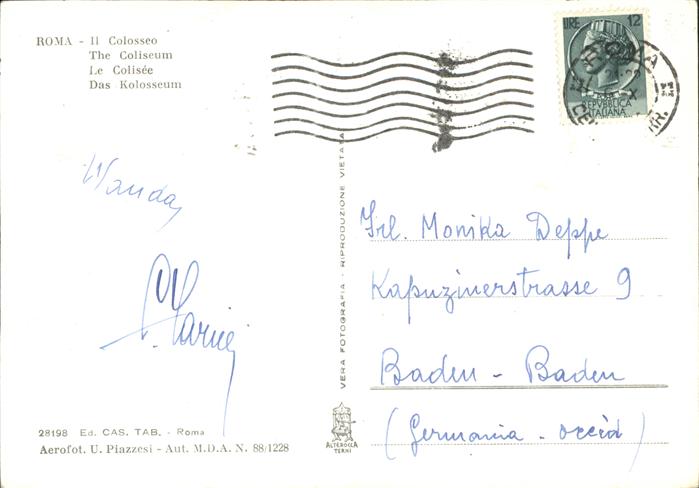 ROMA - Il Colosseo
The Coliseum
Le Colisée
Das Kolosseum
LIRE 12
REPUBBLICA
ITALIANA
Wanda
Frl. Monika Deppe
Kapuzinerstrasse 9
Baden - Baden
(Germania - occid)
VERA FOTOGRAFIA - RIPRODUZIONE VIETATA
28198 Ed. CAS. TAB. - Roma
Aerofot. U. Piazzesi - Aut. M.D.A. N. 88/1228
ALTEROCCA
TERNI